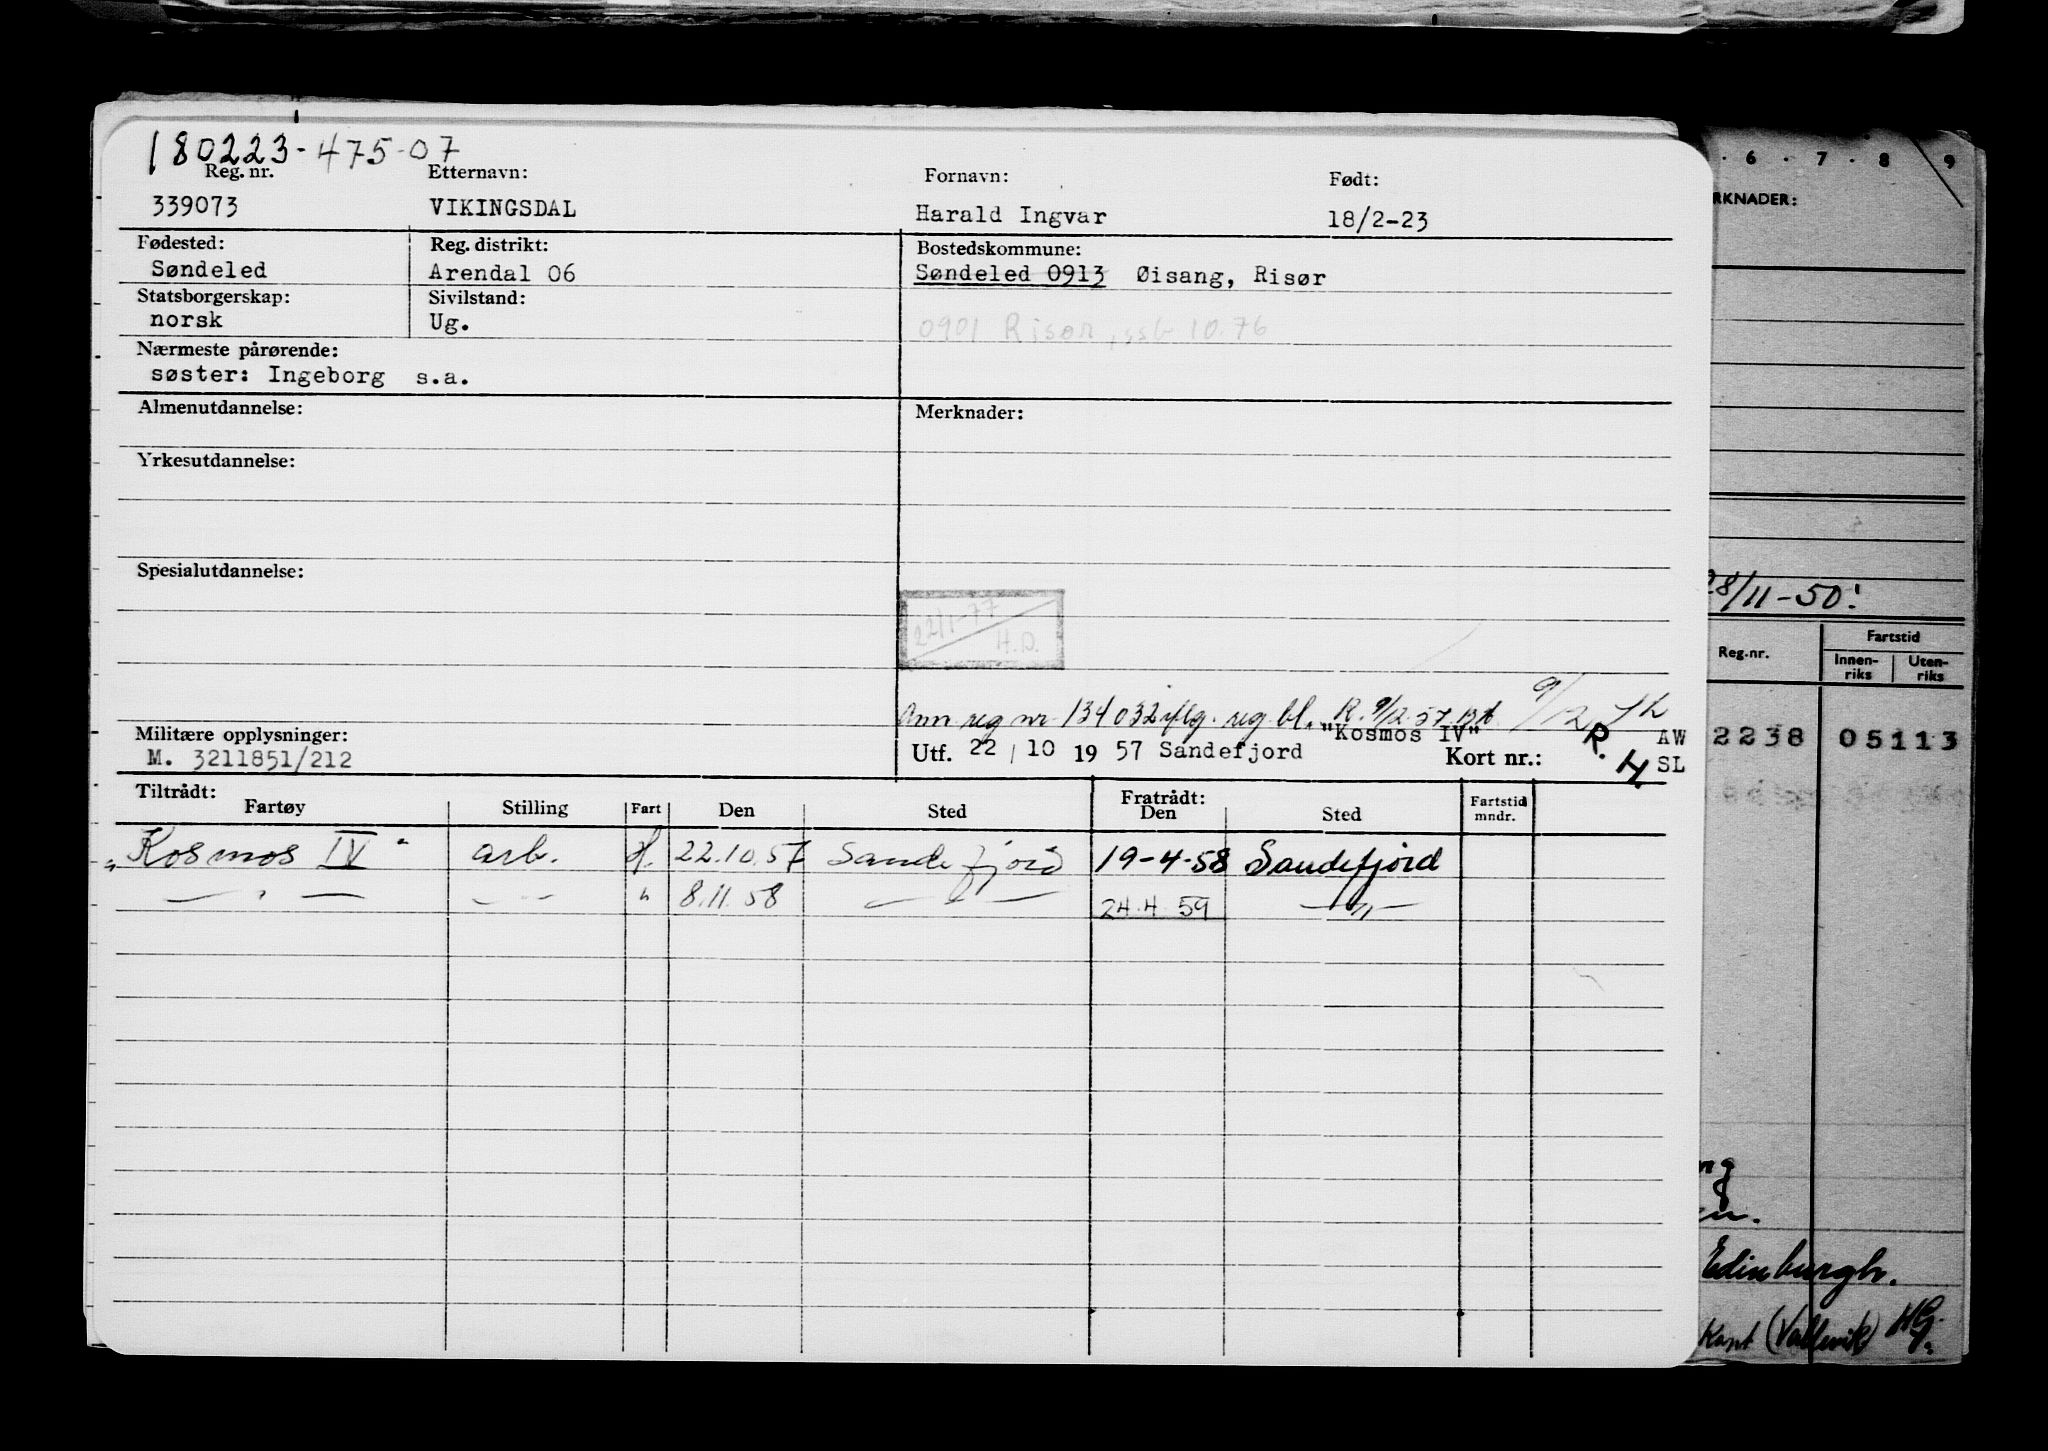 180223-475-07
Reg. nr. Etternavn: Fornavn: Født:
339073 VIKINGSDAL Harald Ingvar 18/2-23
Fødested: Reg. distrikt: Bostedskommune:
Søndeled Arendal 06 Søndeled 0913 Øisang, Risør
Statsborgerskap: Sivilstand:
norsk Ug. 0901 Risør, ssb 10.76
Nærmeste pårørende:
søster: Ingeborg s.a.
Almenutdannelse: Merknader:
Yrkesutdannelse:
Spesialutdannelse:
22/1-77
H.D.
Ann reg nr 134032 iflg. reg. bl. R. 9/12.57. 9/12
"Kosmos IV"
Militære opplysninger: R.H. AW
M. 3211851/212 Utf. 22 / 10 19 57 Sandefjord Kort nr.: SL
Tiltrådt: Fratrådt:
Fartøy Stilling Fart Den Sted Den Sted Fartstid mndr.
"Kosmos IV" arb. H. 22.10.57 Sandefjord 19-4-58 Sandefjord
— " — — " — " 8.11.58 — " — 24.4.59 — " —
. 6 . 7 . 8 9
RKNADER:
28/11-50!
Reg.nr. Fartstid
Innen-riks Uten-riks
2238 05113
Edinburgh.
Kapt (Vallevik) HG.